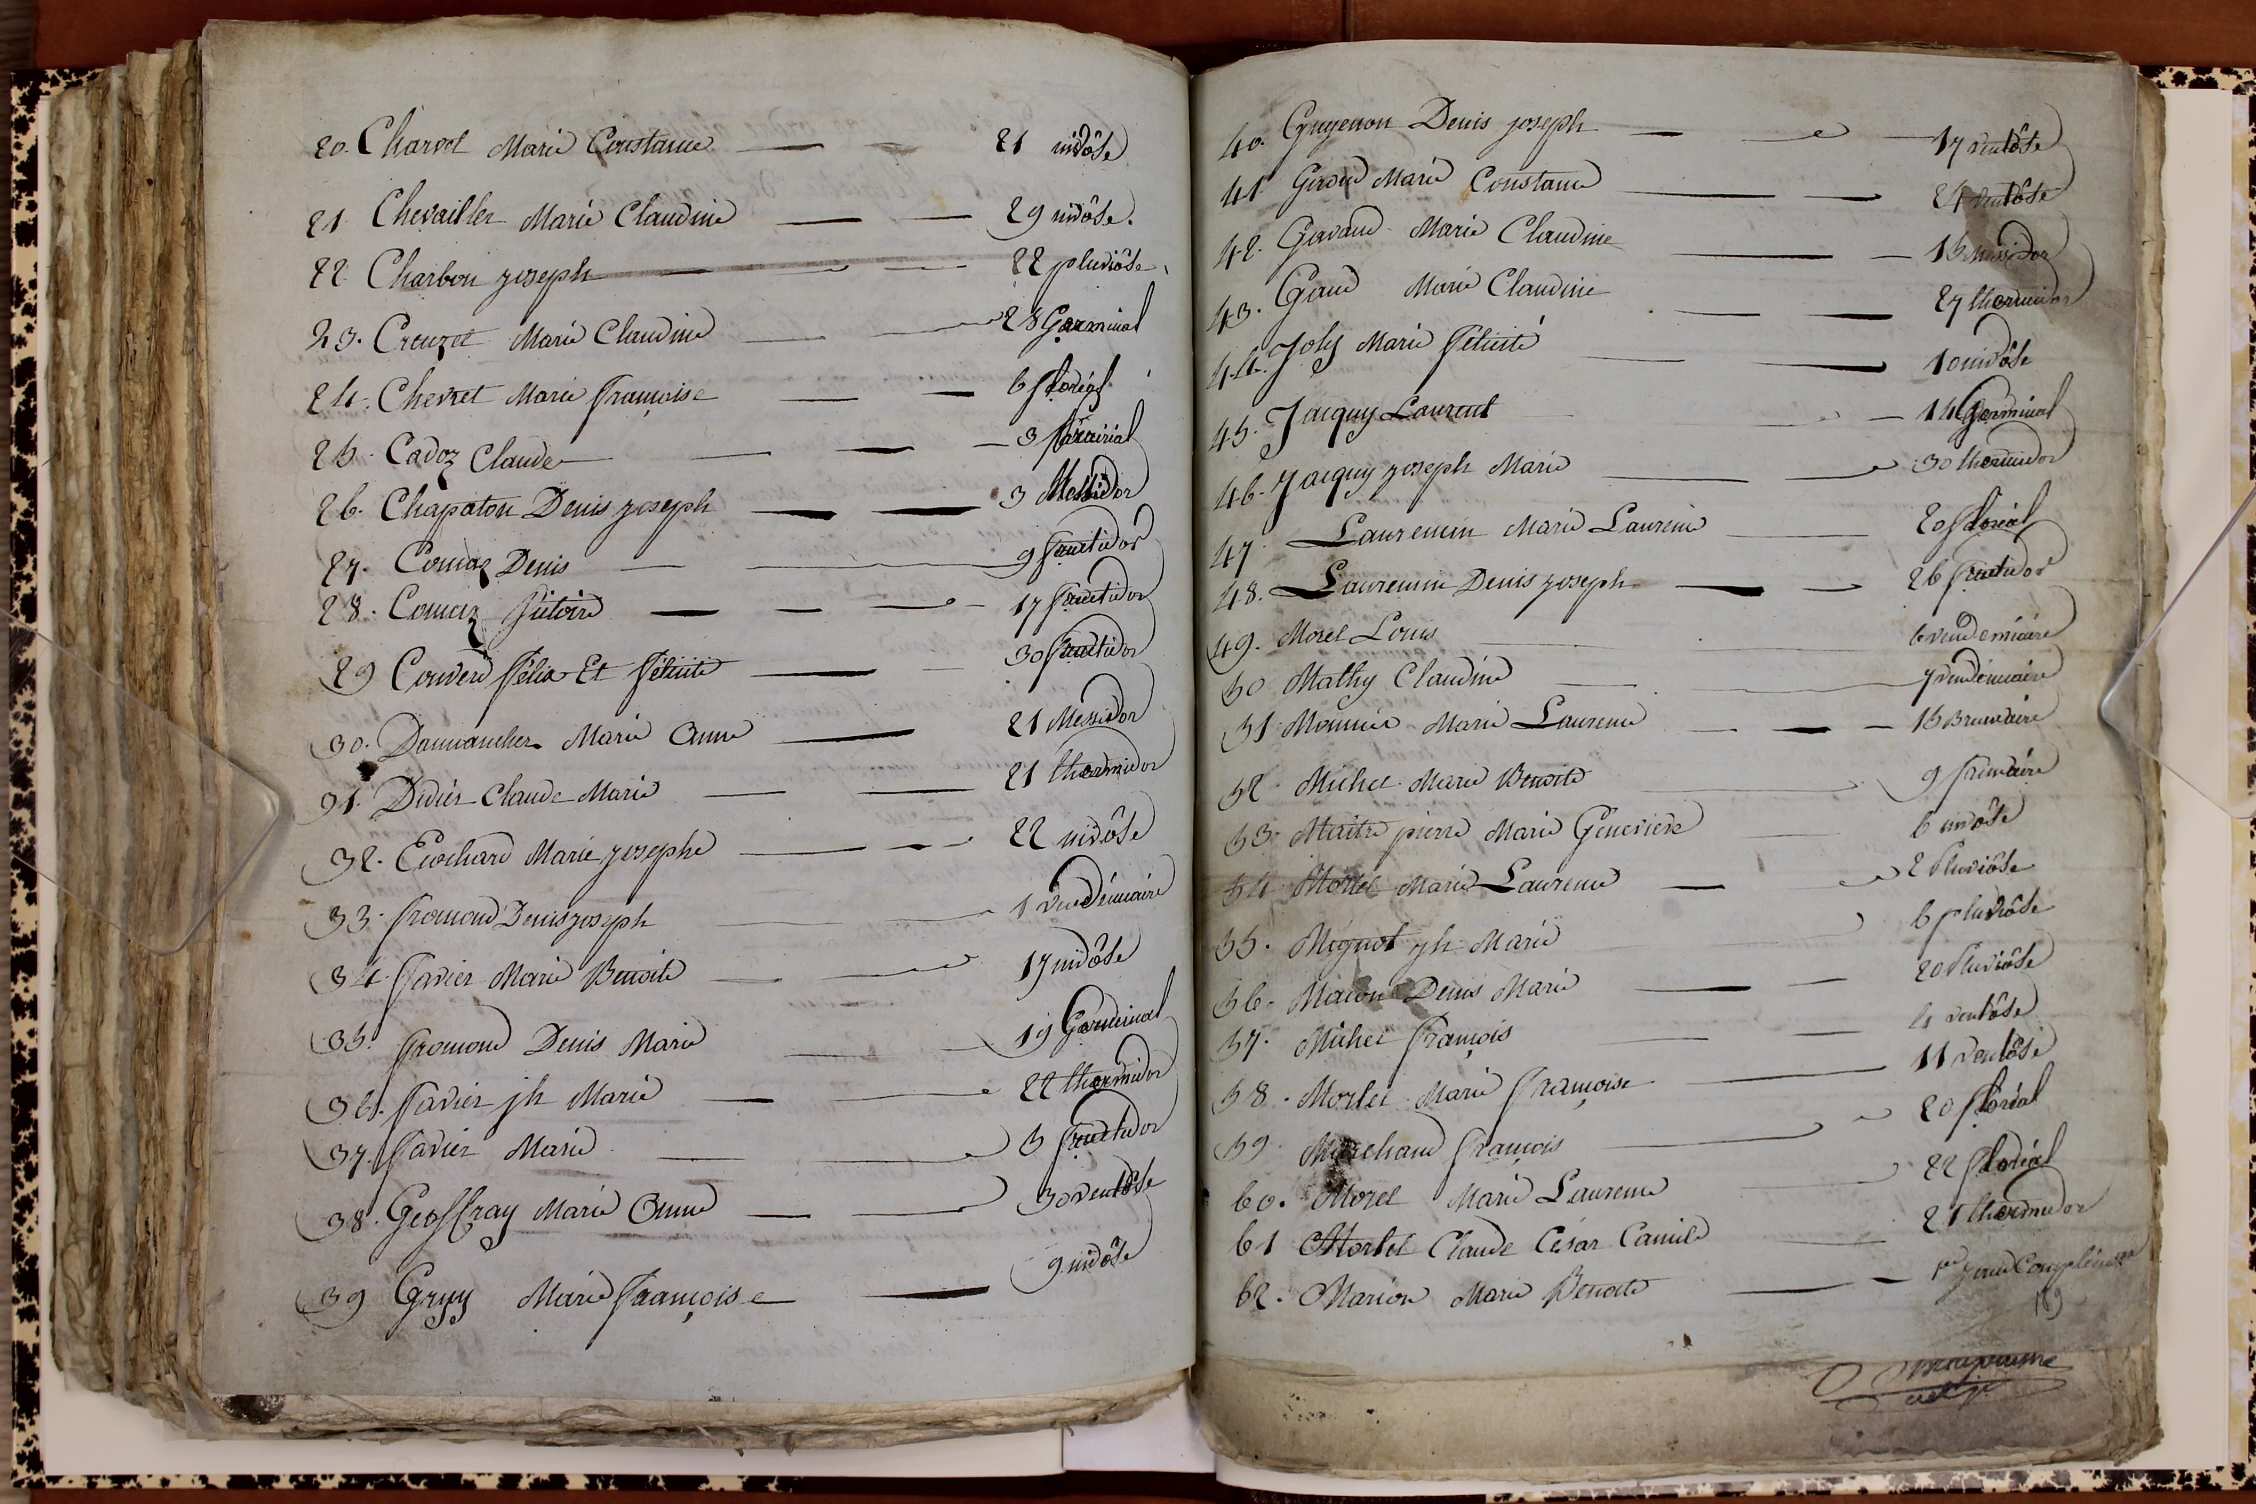 20. Charvet Marie Constance 21 nivôse
21. Chevailler Marie Claudine 29 nivôse.
22. Charbon joseph 22 pluviôse
23. Creuzet Marie Claudine 28 Germinal
24. Chevret Marie françoise 6 floréal
25. Cadoz Claude 3 prairial
26. Chapaton Denis joseph 3 Messidor
27. Comaz Denis 9 fructidor
28. Comaz Victoire 17 fructidor
29 Félix Et Félicité 30 fructidor
30. Marie Anne 21 Messidor
31. Didier Claude Marie 21 thermidor
32. Ecochard Marie josephe 22 nivôse
33. fromond Denis joseph 1 Vendémiaire
34. favier Marie Benoite 17 nivôse
35. fromond Denis Marie 19 Germinal
36. favier jh Marie 22 thermidor
37. favier Marie 5 fructidor
38. Geoffray Marie Anne 30 Ventôse
39 Gruy Marie françoise 9 nivôse
40. Guyenon Denis joseph 17 ventôse
41 Girod Marie Constance 24 ventôse
42. Gavand Marie Claudine 15 messidor
43. Gaud Marie Claudine 27 thermidor
44. Joly Marie Félicité 10 nivôse
45. Jacquy Laurent 14 Germinal
46. Jacquy joseph Marie 30 thermidor
47. Laurencin Marie Laurence 20 floréal
48. Laurencin Denis joseph 26 fructidor
49. Morel Louis 6 vendémiaire
50 Mathy Claudine 7 vendémiaire
51 Monnier Marie Laurence 15 Brumaire
52. Michel Marie Benoite 9 frimaire
53. Maitre pierre Marie Genevieve 6 nivôse
54 Morlet Marie Laurence 2 Pluviôse
55. Mignot jh Marie 6 pluviôse
56. Macon Denis Marie 20 Pluviôse
57. Michel François 4 ventôse
58. Morlet Marie françoise 11 Ventôse
59. Marchand François 20 floréal
60. Morel Marie Laurence 22 floréal
61 Morlet Claude César Camile 21 thermidor
62. Marion Marie Benoite 1er jour Complément